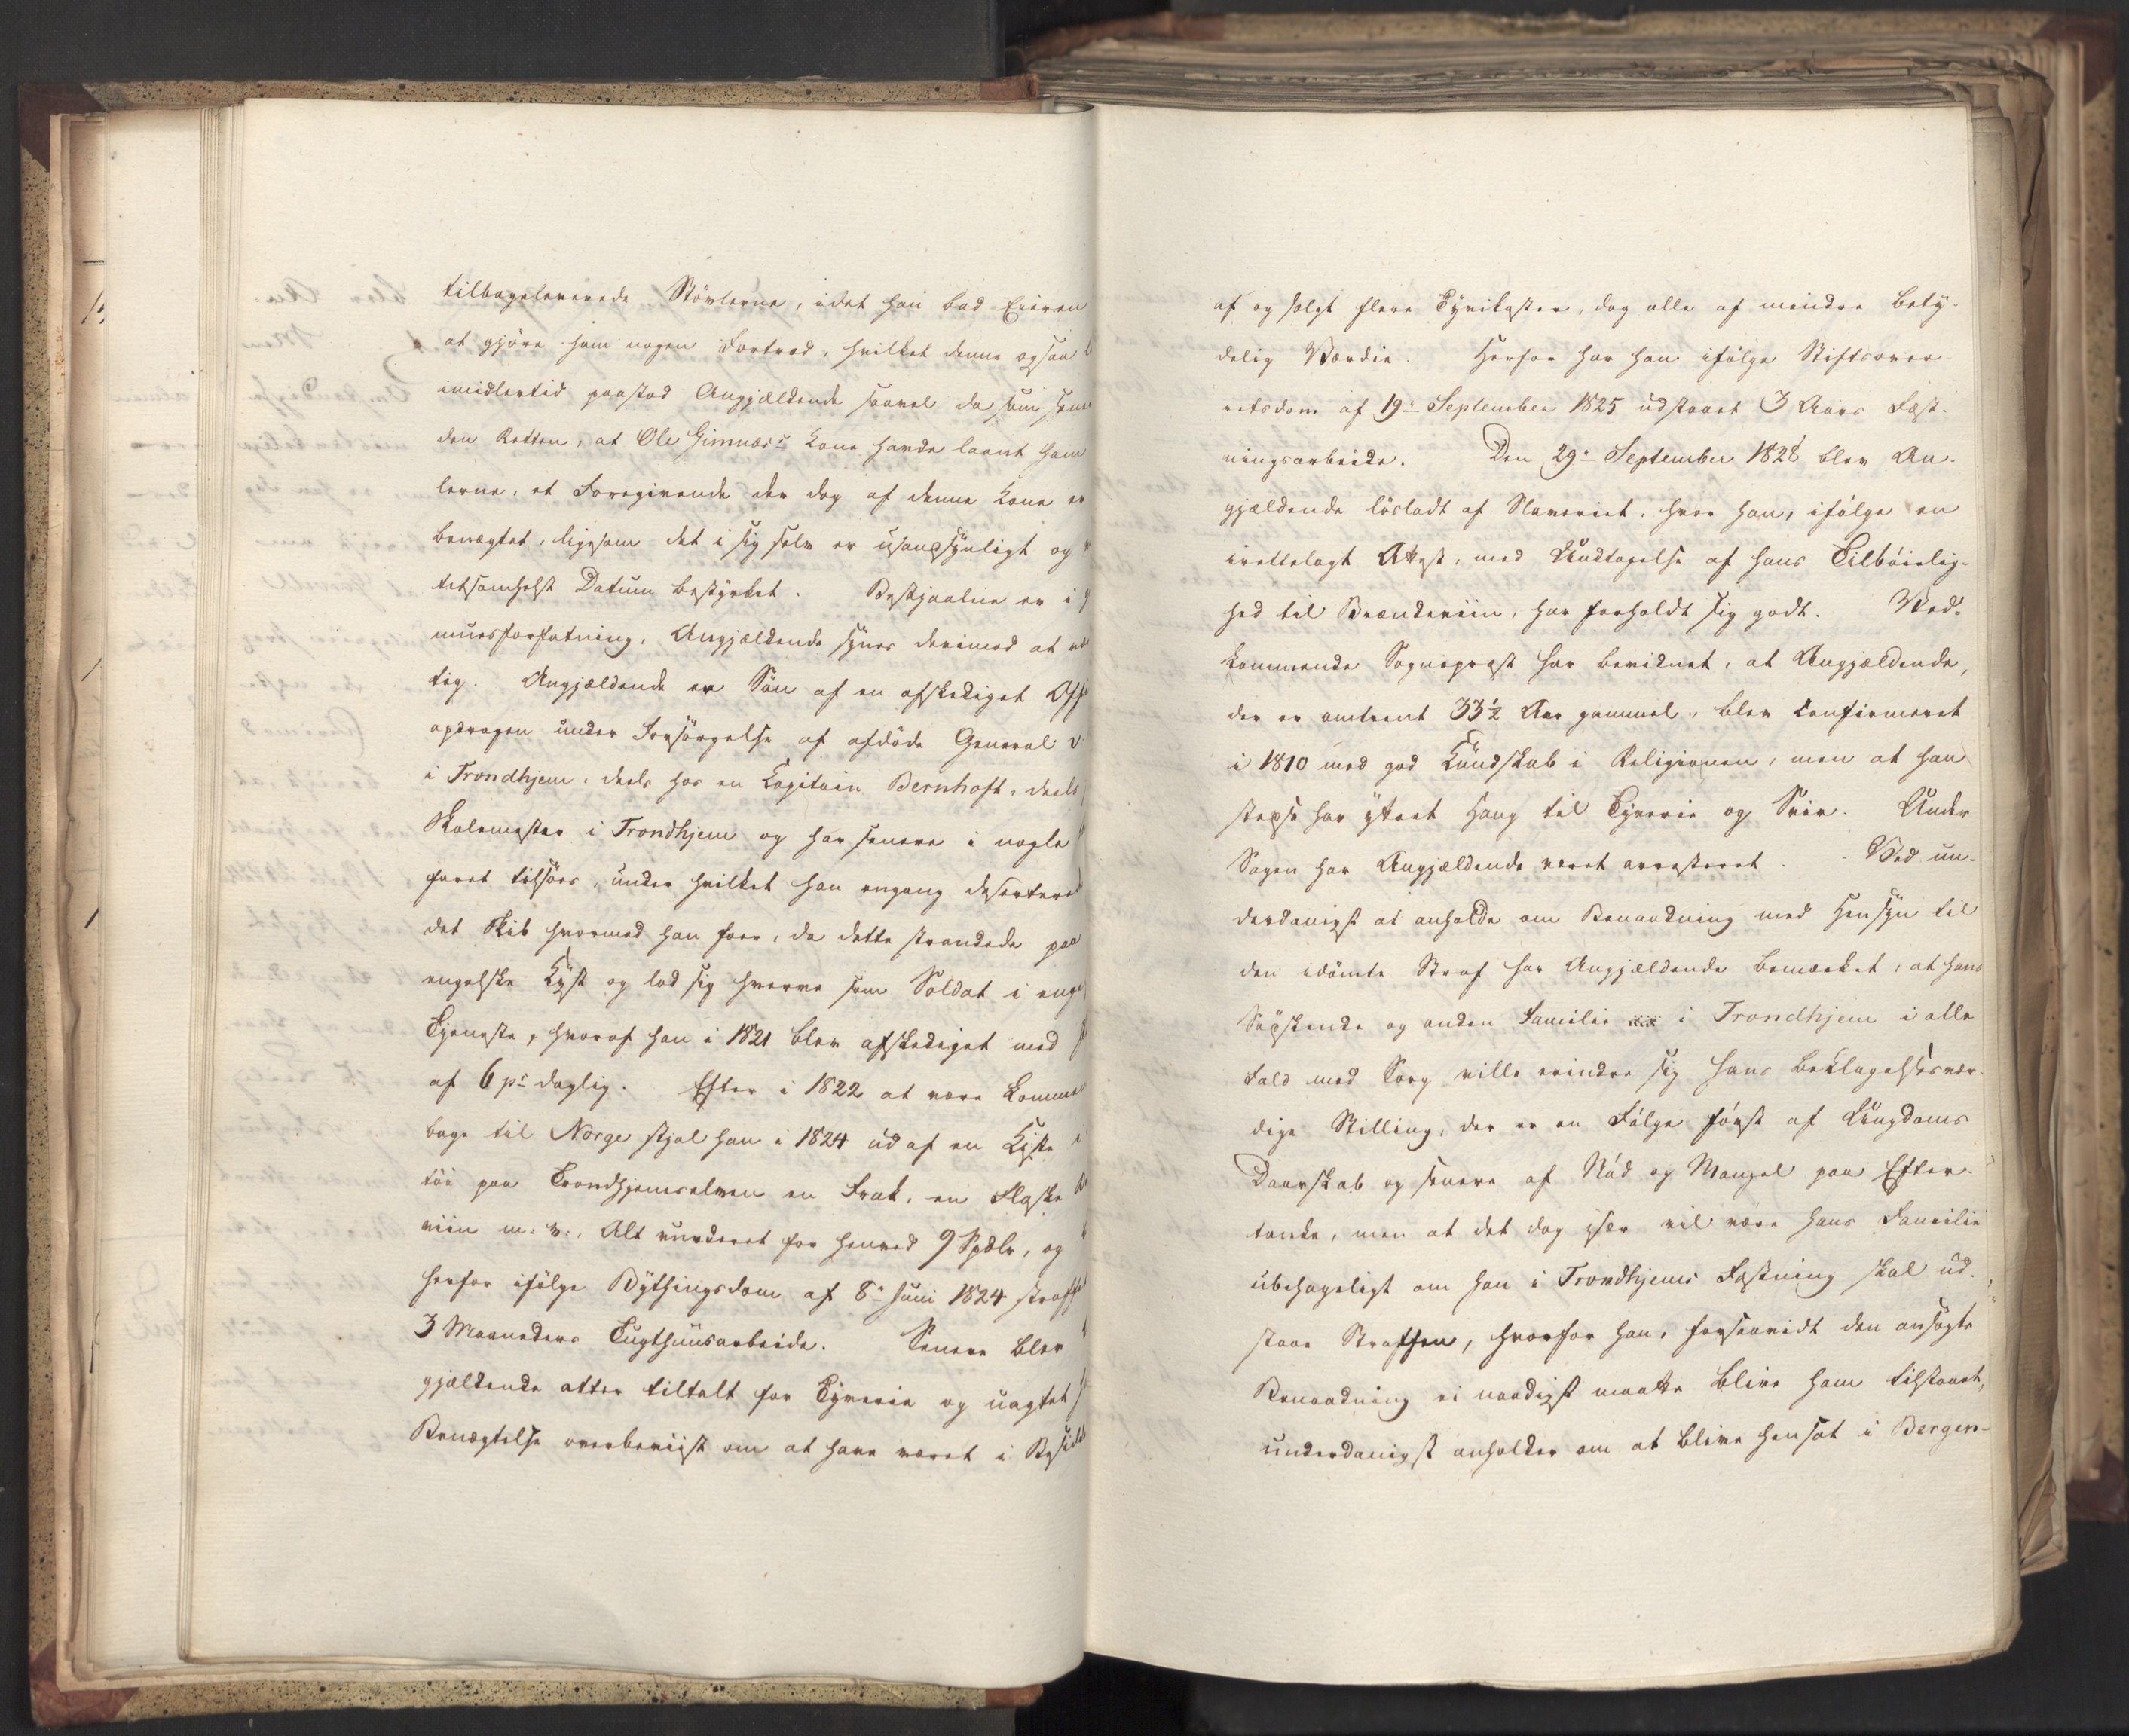 tilbageleverede Stövlerne, idet han bad Eieren
at gjöre ham nogen Fortræd, hvilket denne ogsaa
imidlertid paastod Angjældende saavel da som sene
den Retten, at Ole Gimnæs's Kone havde laant ham
lerne, et Foregivende der dog af denne Kone er
benægtet, ligesom det i sig selv er usandsynligt og
tetsomhelst Datum bestyrket. Bestjaalne er i g
muesforfatning, Angjældende synes derimod at væ
tig. Angjældende er Sön af en afskediget Off
opdragen under Forsörgelse af afdöde General v.
i Trondhjem, deels hos en Kapitain Bernhoft, deels
Skolemester i Trondhjem og har senere i nogle
faret tilsöes, under hvilket han engang deserterede
det Skib hvormed han foer, da dette strandede paa
engelske Kyst og lod sig hverve som Soldat i enge
Tjeneste, hvoraf han i 1821 blev afskediget med
af 6 p: daglig. Efter i 1822 at være kommen
bage til Norge stjal han i 1824 ud af en Kiste i
töi paa Trondhjemselven en Frak, en Flaske
viin m: v:, Alt vurderet for henved 9 Spdlr, og
herfor ifölge Bythingsdom af 8: Juni 1824 straffet
3 Maaneders Tugthuusarbeide. Senere blev
gjældende atter tiltalt for Tyverie og uagtet
Benægtelse overbeviist om at have været i Besidde
af og solgt flere Tyvekoster, dog alle af mindre bety-
delig Værdie. Herfor har han ifölge Stiftsover
retsdom af 19: September 1825 udstaaet 3 Aars Fæst-
ningsarbeide. Den 29: September 1828 blev An-
gjældende lösladt af Slaveriet, hvor han, ifölge en
irettelagt Attest, med Undtagelse af hans Tilböielig-
hed til Brændeviin, har forholdt sig godt. Ved-
kommende Sognepræst har bevidnet, at Angjældende,
der er omtrent 33½ Aar gammel, blev confirmeret
i 1810 med god Kundskab i Religionen, men at han
stepse har yttret Hang til Tyverie og Sviir. Under
Sagen har Angjældende været arresteret. Ved un-
derdanigst at anholde om Benaadning med Hensyn til
den idömte Straf har Angjældende bemærket, at hans
Söskende og anden Familie i Trondhjem i alle
Fald med Sorg ville erindre sig hans beklagelsesvær-
dige Stilling, der er en Fölge först af Ungdoms
Daarskab og senere af Nöd og Mangel paa Efter-
tanke, men at det dog især vil være hans Familie
ubehageligt om han i Trondhjems Fæstning skal ud-
staae Straffen, hvorfor han, forsaavidt den ansögte
Benaadning ei naadigst maatte blive ham tilstaaet,
underdanigst anholder om at blive hensat i Bergen-